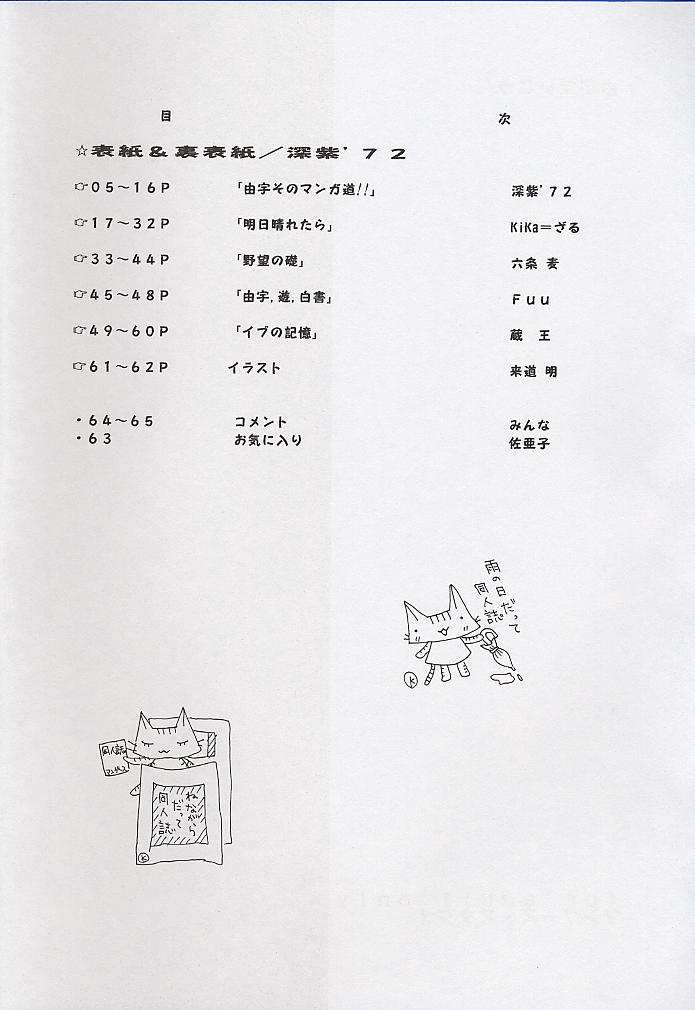 目　次
☆表紙＆裏表紙／深紫’７２
☞０５～１６Ｐ　「由宇そのマンガ道!!」　深紫’７２
☞１７～３２Ｐ　「明日晴れたら」　KiKa＝ざる
☞３３～４４Ｐ　「野望の礎」　六条 麦
☞４５～４８Ｐ　「由宇,遊,白書」　Ｆｕｕ
☞４９～６０Ｐ　「イブの記憶」　蔵　王
☞６１～６２Ｐ　イラスト　来道 明
・６４～６５　コメント　みんな
・６３　お気に入り　佐亜子
雨の日だって
同人誌。
K
同人誌
ねながら
だって
同人誌
K